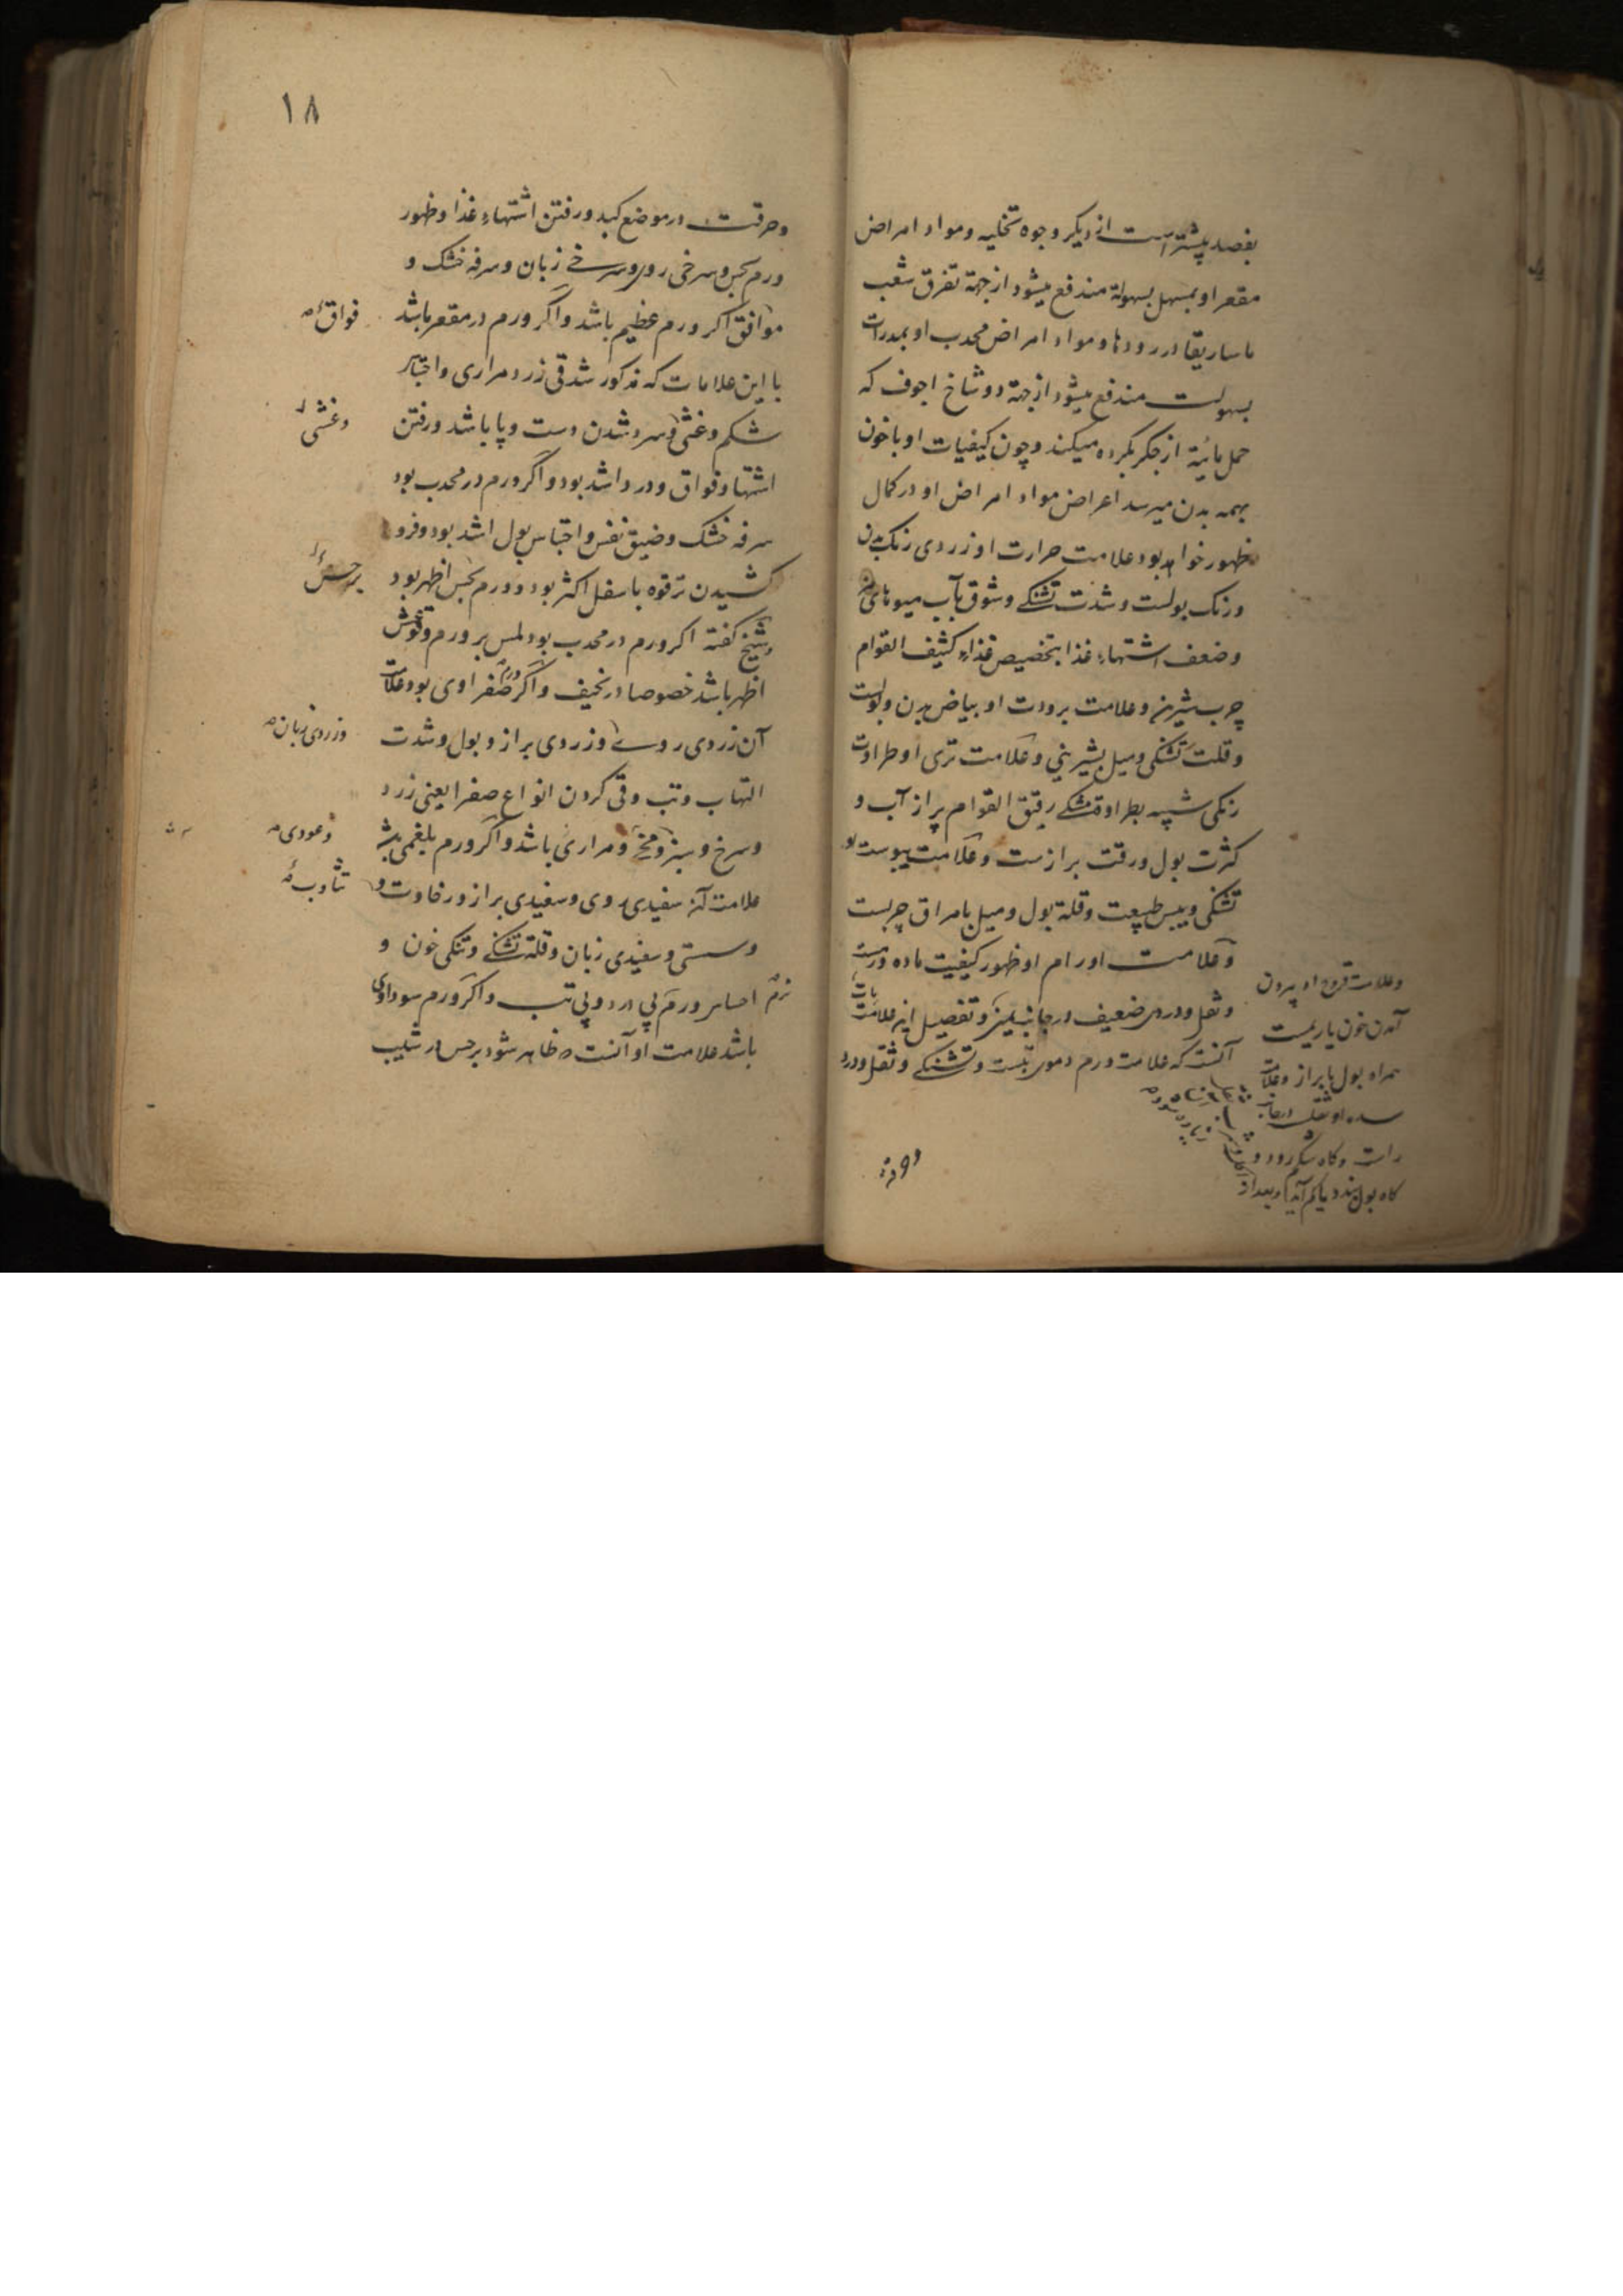 بفصد پیشتر است از دیکر وجوه تخلیه ومواد امراض
مقعر او بمسهل بسهولة مندفع میشود از جهة تفرق شعب
ماساریقا در رودها ومواد امراض محدب او بمدرات
بسهولت مندفع میشود از جهة دو شاخ اجوف که
حمل مائیة از جکر بکرده میکند وچون کیفیات او با خون
بهمه بدن میرسد اعراض مواد امراض او در کمال
ظهور خواهد بود علامت حرارت او زردی رنک بدن
ورنک بولست وشدت تشنکے وشوق بآب میوهای
وضعف اشتهاء غذا بتخصیص غذاء کثیف القوام
چرب شیرین وعلامت برودت او بیاض بدن وبولست
وقلت تشنکی ومیل بشیرینی وعلامت تری او طراوت
رنکی شبیه بطراوة مشکے رقیق القوام پر از آب و
کثرت بول ورقت برازست وعلامت یبوست او
تشنکی ویبس طبیعت وقلة بول ومیل بامراق چربست
وعلامت اورام او ظهور کیفیت ماده ورمست
وثقل ودردی ضعیف در جانب یمین وتفصیل این علامات
آنست که علامت ورم دموی تبست وتشنکے وثقل ودرد
وعلامت قروح او بیرون
آمدن خون یا ریمست
همراه بول یا براز وعلامت
سده او ثقلست در جانب
راست وکاه شکم رود و
کاه بول بند یا کم آید وبعد از
وحرقت
وحرقت در موضع کبد ورفتن اشتهاء غذا وظهور
ورم بحس وسرخی روی وسرخے زبان وسرفه خشک و
فواق
موافق اکر ورم عظیم باشد واکر ورم در مقعر باشد
با این علامات که مذکور شد قی زرد مراری واحتباس
شکم وغثی وسرد شدن دست وپا باشد ورفتن
وغشی
اشتها وفواق ودرد اشد بود واکر ورم در محدب بود
سرفه خشک وضیق نفس واحتباس بول اشد بود وفرو
کشیدن ترقوه باسفل اکثر بود وورم بحس اظهر بود
بر حس
وشیخ کفته اکر ورم در محدب بود لمس بر ورم
اظهر باشد خصوصا در نحیف واکر ورم صفراوی بود علامت
آن زردی روے وزردی براز وبول وشدت
وزردی زبان
التهاب وتب وقی کردن انواع صفرا یعنی زرد
وسرخ وسبز ومخے ومراری باشد واکر ورم بلغمی باشد
وعودی
علامت آن سفیدی روی وسفیدی براز ورخاوت و
تثاوب
وسستی وسفیدی زبان وقلة تشنکے وتنکی خون و
نرم احساس ورم بی درد وبی تب واکر ورم سوداوی
باشد علامت او آنست که ظاهر شود بر حس در شیب
۱۸